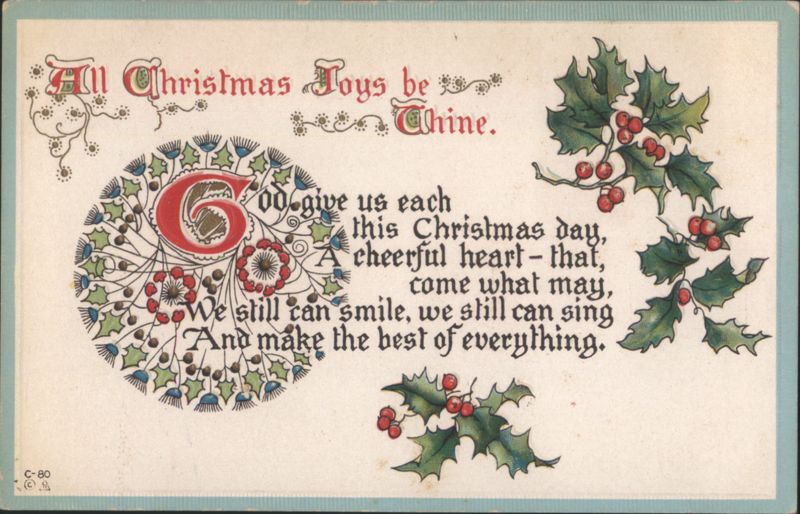 All Christmas Joys be
Thine.
God give us each
this Christmas day,
A cheerful heart – that,
come what may,
We still can smile, we still can sing
And make the best of everything.
C-80
©